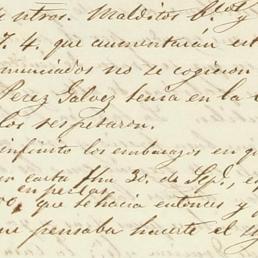 Malditos
7. 4. que aumentarán est
nunciados no se cogieron
Perez Galvez tenia en la
los respetaron.
infinito los embarazos en q
carta fha 30. de Sp.e, e
en pecetas
que se hacia entonces y
ue pensaba huerte el